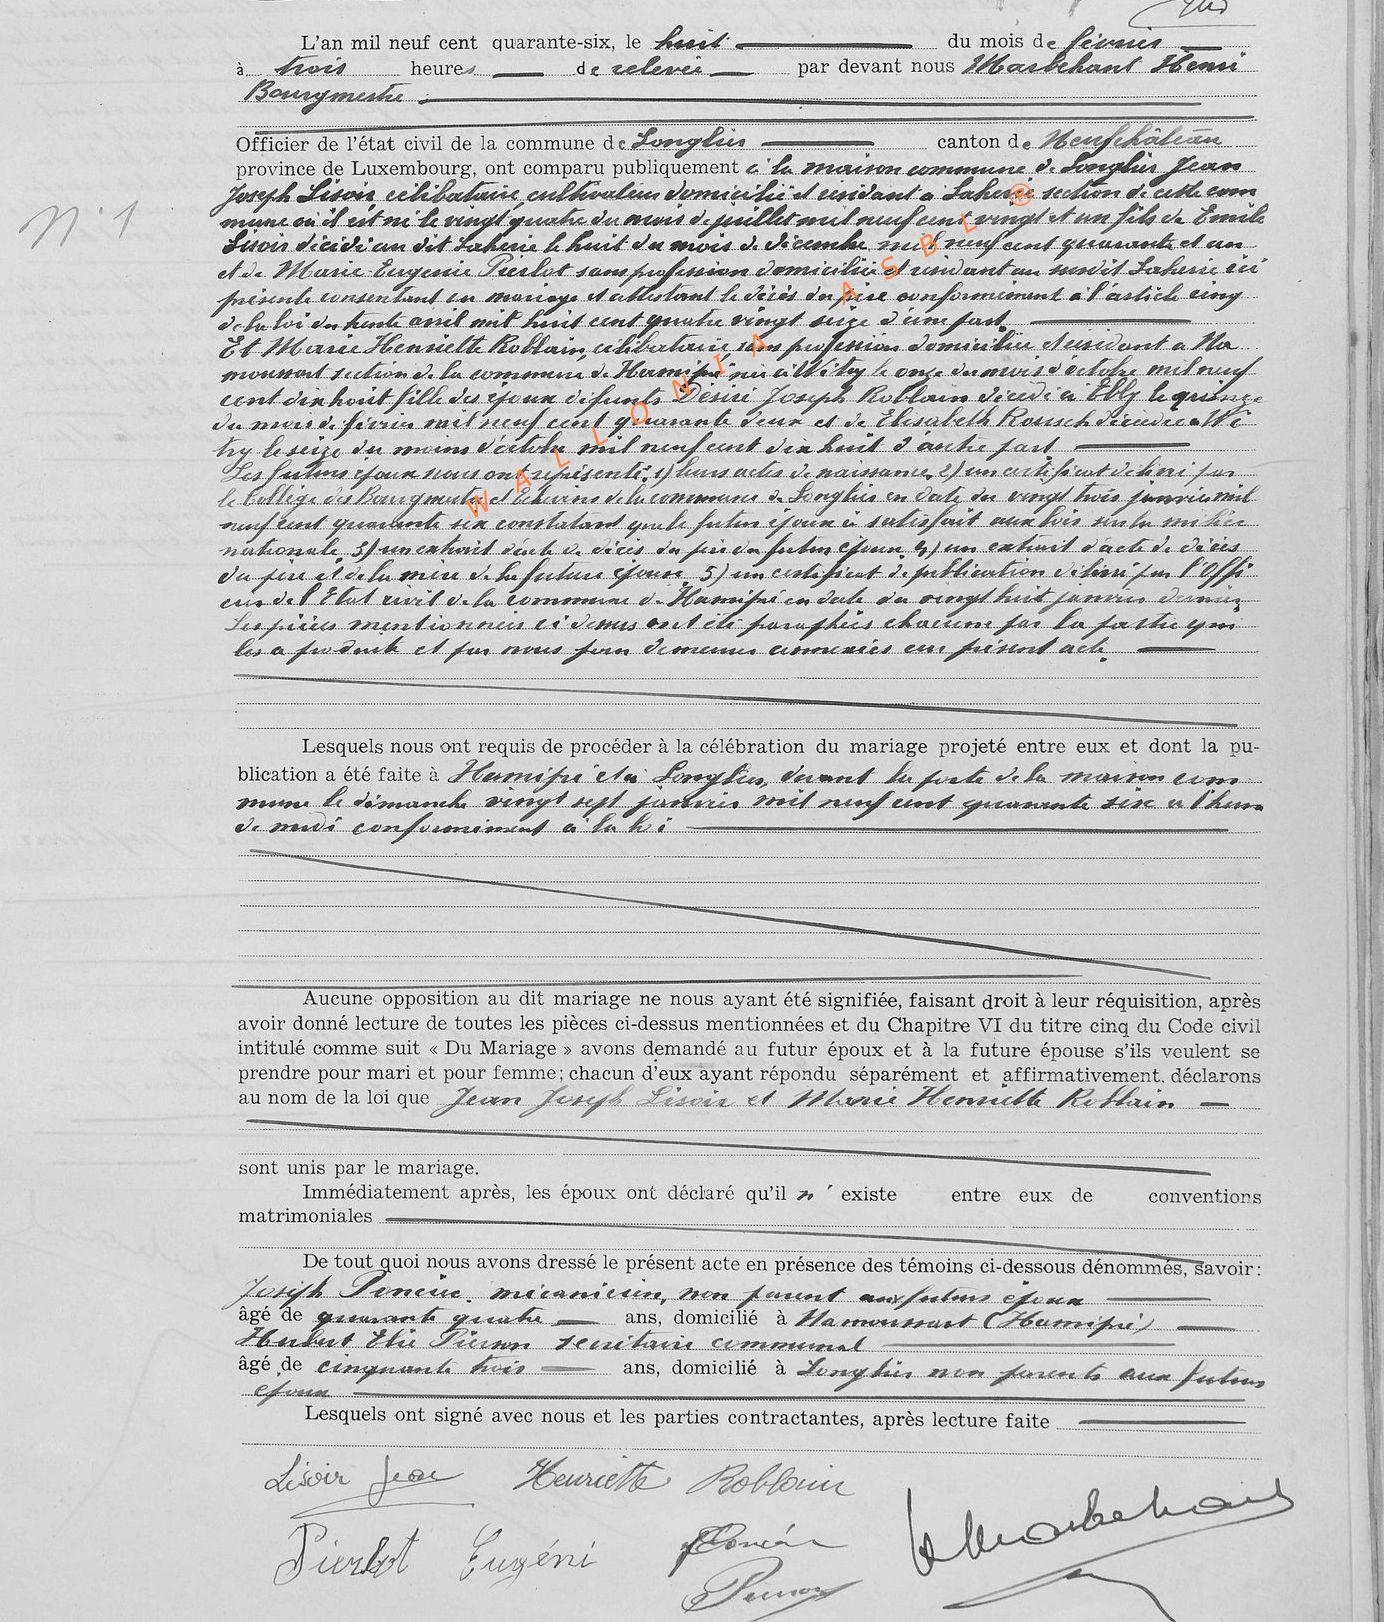 L'an mil neuf cent quarante-six, le huit du mois de février
à trois heures de relevée par devant nous Marbehant Henri
Bourgmestre
Officier de l'état civil de la commune de Longlier canton de Neufchâteau
province de Luxembourg, ont comparu publiquement à la maison commune de Longlier Jean
Joseph Lisoir célibataire cultivateur domicilié et résidant à Laherie section de cette com
mune où il est né le vingt quatre du mois de juillet mil neuf cent vingt et un fils de Emile
Lisoir décédé au dit Laherie le huit du mois de décembre mil neuf cent quarante et un
et de Marie Eugenie Pierlot sans profession domiciliée et résidant au susdit Laherie ici
présente consentant en mariage et attestant le décès du père conformément à l'article cinq
de la loi du trente avril mil huit cent quatre vingt seize d'une part
Et Marie Henriette Roblain célibataire sans profession domiciliée et résidant à Na
moussart section de la commune de Hamipré née à Witry le onze du mois d'octobre mil neuf
cent dix huit fille des époux défunts Désiré Joseph Roblain décédé à Ebly le quinze
du mois de février mil neuf cent quarante deux et de Elisabeth décédée à Wi
try le seize du moins d'octobre mil neuf cent dix huit d'autre part
Les futurs époux nous ont représenté: 1) leurs actes de naissance 2) un certificat délivré par
le Collège des Bourgmestre et Echevins de la commune de Longlier en date du vingt trois janvier mil
neuf cent quarante six constatant que le futur époux à satisfait aux lois sur la milice
nationale 3) un extrait d'acte de décès du père du futur époux 4) un extrait d'acte de décès
du père et de la mère de la future épouse 5) un certificat de publication délivré par l'Offi
cier de l'Etat civil de la commune de Hamipré en date du vingt huit janvier dernier
Les pièces mentionnées ci dessus ont été paraphées chacune par la partie qui
les a produite et par nous pour demeurer annexées au présent acte
Lesquels nous ont requis de procéder à la célébration du mariage projeté entre eux et dont la pu-
blication a été faite à Hamipré et à Longlier, devant la porte de la maison com
mune le dimanche vingt sept janvier mil neuf cent quarante six à l'heure
de midi conformément à la loi
Aucune opposition au dit mariage ne nous ayant été signifiée, faisant droit à leur réquisition, après
avoir donné lecture de toutes les pièces ci-dessus mentionnées et du Chapitre VI du titre cinq du Code civil
intitulé comme suit « Du Mariage » avons demandé au futur époux et à la future épouse s'ils veulent se
prendre pour mari et pour femme; chacun d'eux ayant répondu séparément et affirmativement, déclarons
au nom de la loi que Jean Joseph Lisoir et Marie Henriette Roblain
sont unis par le mariage.
Immédiatement après, les époux ont déclaré qu'il n' existe entre eux de conventions
matrimoniales
De tout quoi nous avons dressé le présent acte en présence des témoins ci-dessous dénommés, savoir:
Joseph Poncin mécanicien, non parent aux futurs époux
âgé de quarante quatre ans, domicilié à Namoussart (Hamipré)
Hubert Elie Pierson secrétaire communal
âgé de cinquante trois ans, domicilié à Longlier non parents aux futurs
époux
Lesquels ont signé avec nous et les parties contractantes, après lecture faite
N° 1
WALLONIA ASBL ©
Lisoir Jean Henriette Roblain
Pierlot Eugéni
Marbehant